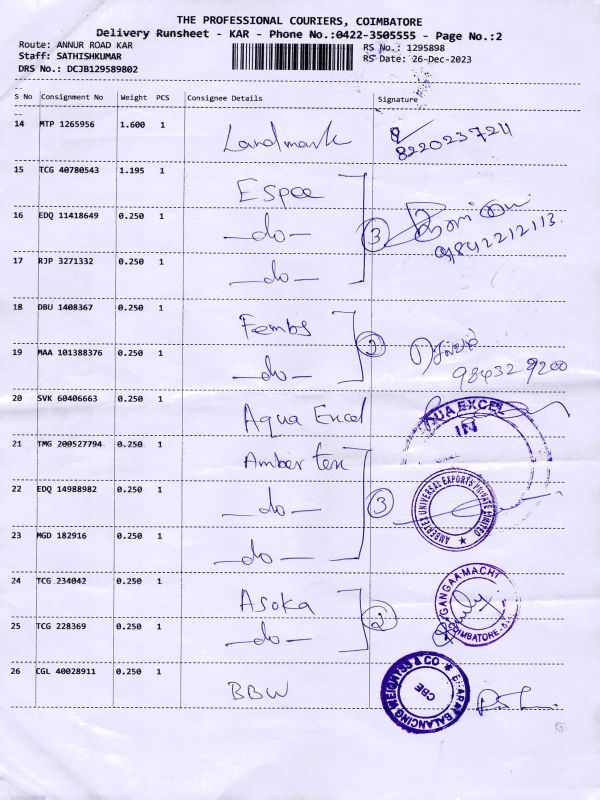 THE PROFESSIONAL COURIERS, COIMBATORE
Delivery Runsheet - KAR - Phone No.:0422-3505555 - Page No.:2
Route: ANNUR ROAD KAR
RS No.: 1295898
Staff: SATHISHKUMAR
RS Date: 26-Dec-2023
DRS No.: DCJB129589802
S No Consignment No Weight PCS Consignee Details Signature
14 MTP 1265956 1.600 1 Landmark 8220237211
15 TCG 40780543 1.195 1 Espee
16 EDQ 11418649 0.250 1 —do— 3 9842212113
17 RJP 3271332 0.250 1 —do—
18 DBU 1408367 0.250 1 Fembs 2
19 MAA 101388376 0.250 1 —do— 984329200
20 SVK 60406663 0.250 1 Aqua Excel AQUA EXCEL IN
21 TMG 200527794 0.250 1 Amber tex
22 EDQ 14988982 0.250 1 —do— 3 AMBERTEX UNIVERSAL EXPORTS PRIVATE LIMITED
23 MGD 182916 0.250 1 —do—
24 TCG 234042 0.250 1 Asoka 2 GANGAA MACHI COIMBATORE
25 TCG 228369 0.250 1 —do—
26 CGL 40028911 0.250 1 BBW BHARAT BALANCING WEIGHTSS & CO CBE